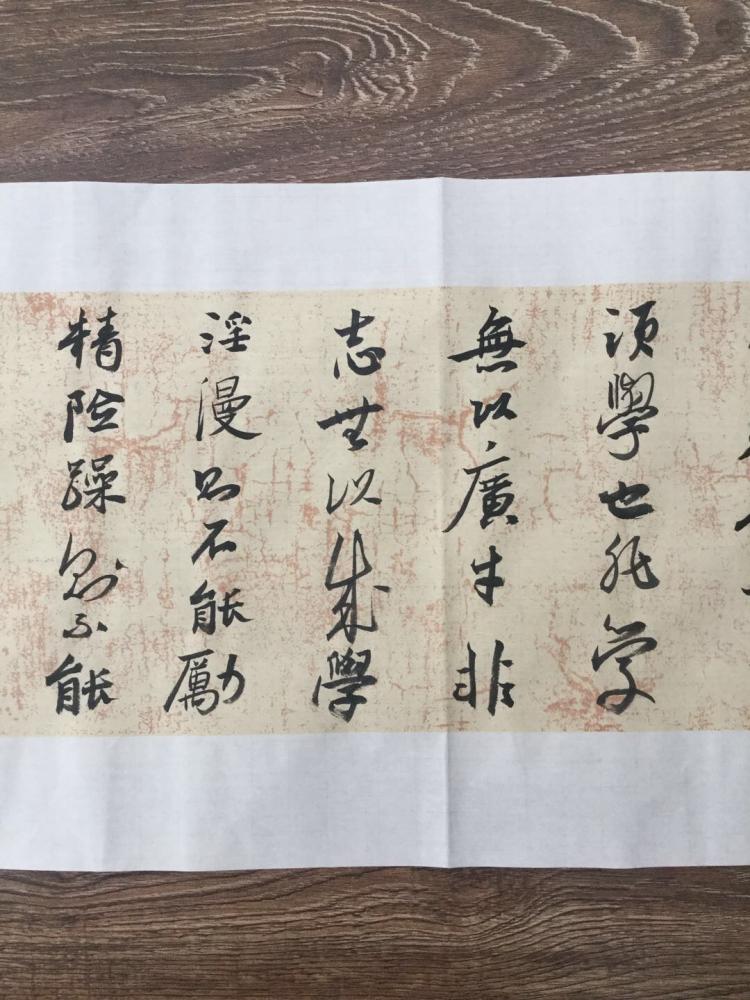 須學也非學
無以廣才非
志無以成學
淫漫則不能勵
精險躁則不能